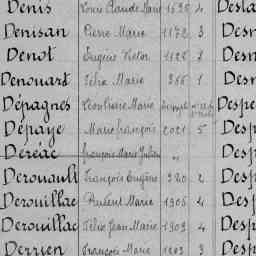 Denis Louis Claude Marie 1696 4 Desla
Denisan Pierre Marie 1172 3 Desn
Denot Eugène Victor 1128 7 Desn
Denouart Félix Marie 366 1 Desn
Dépagnes Marie Despe
Dépaye Marie françois 2021 5 Desp
Déréac françois Marie Julien " Desp
Derouault François Eugène 920 2 Desp
Derouillac Prudent Marie 1906 4 Desp
Derouillac Félix Jean Marie 1909 4 Desp
Derrien François Marie 1203 3 Desp